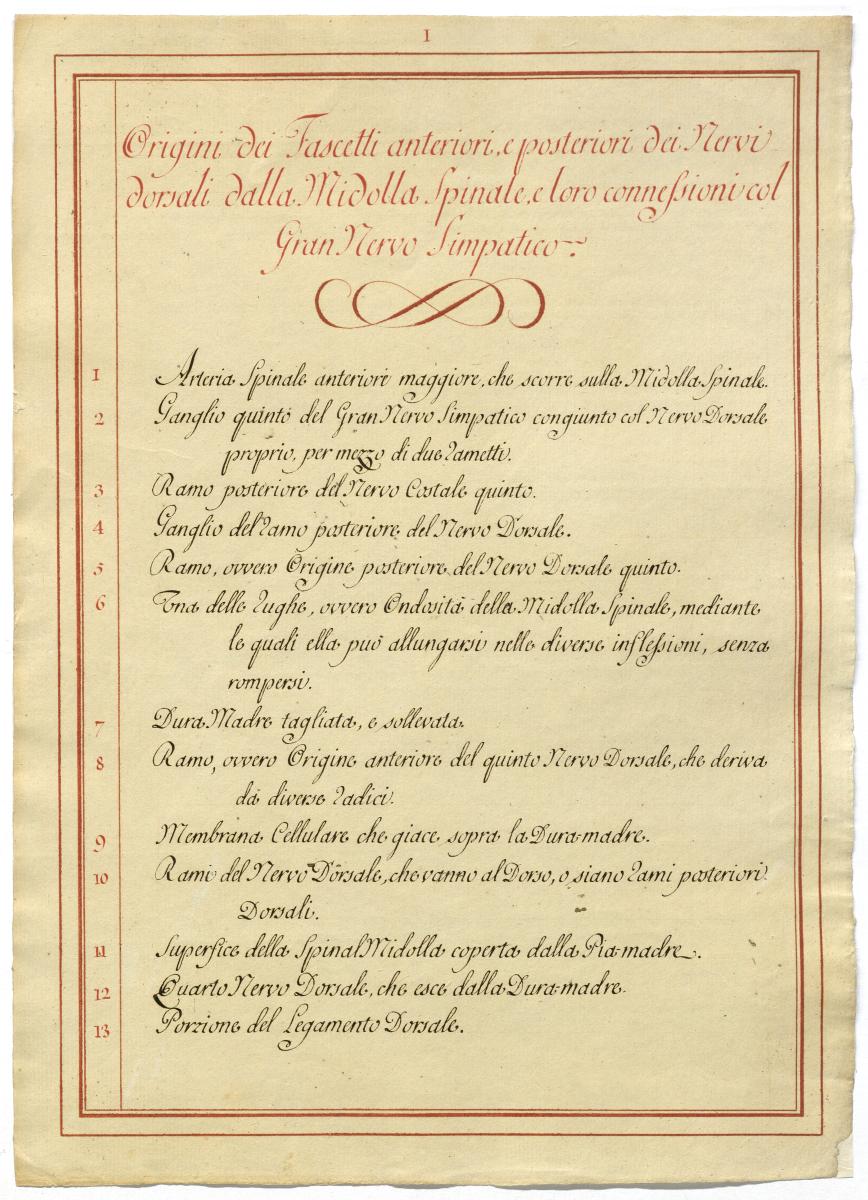 I
Origini dei Fascetti anteriori, e posteriori dei Nervi
dorsali dalla Midolla Spinale, e loro connessioni col
Gran Nervo Simpatico
1 Arteria Spinale anteriore maggiore, che scorre sulla Midolla Spinale.
2 Ganglio quinto del Gran Nervo Simpatico congiunto col Nervo Dorsale
proprio, per mezzo di due rametti.
3 Ramo posteriore del Nervo Costale quinto.
4 Ganglio del ramo posteriore del Nervo Dorsale.
5 Ramo, ovvero Origine posteriore del Nervo Dorsale quinto.
6 Una delle rughe, ovvero Ondosità della Midolla Spinale, mediante
le quali ella può allungarsi nelle diverse inflessioni, senza
rompersi.
7 Dura Madre tagliata, e sollevata.
8 Ramo, ovvero Origine anteriore del quinto Nervo Dorsale, che deriva
da diverse radici.
9 Membrana Cellulare che giace sopra la Dura-madre.
10 Rami del Nervo Dorsale, che vanno al Dorso, o siano rami posteriori
Dorsali.
11 Superfice della Spinal Midolla coperta dalla Pia-madre.
12 Quarto Nervo Dorsale, che esce dalla Dura-madre.
13 Porzione del Legamento Dorsale.